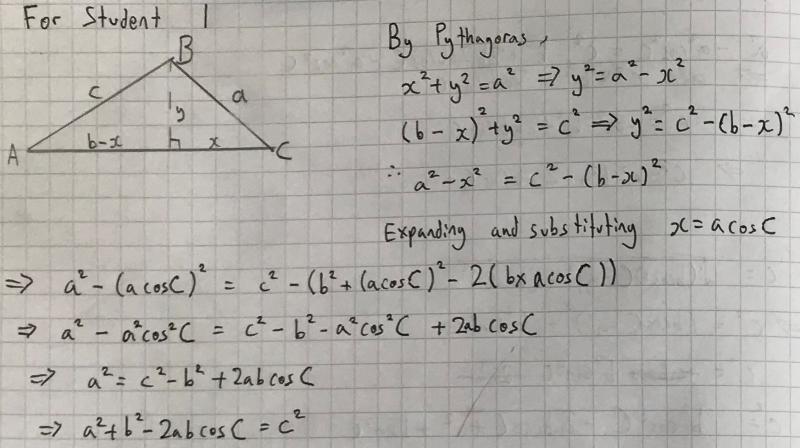 For Student 1
B
c
a
y
A
b-x
x
C
By Pythagoras,
x²+y²=a² ⇒ y²=a²-x²
(b-x)²+y²=c² ⇒ y²=c²-(b-x)²
∴ a²-x² = c²-(b-x)²
Expanding and substituting x=acosC
⇒ a²-(acosC)² = c²-(b²+(acosC)²-2(b×acosC))
⇒ a²-a²cos²C = c²-b²-a²cos²C +2abcosC
⇒ a²=c²-b²+2abcosC
⇒ a²+b²-2abcosC=c²